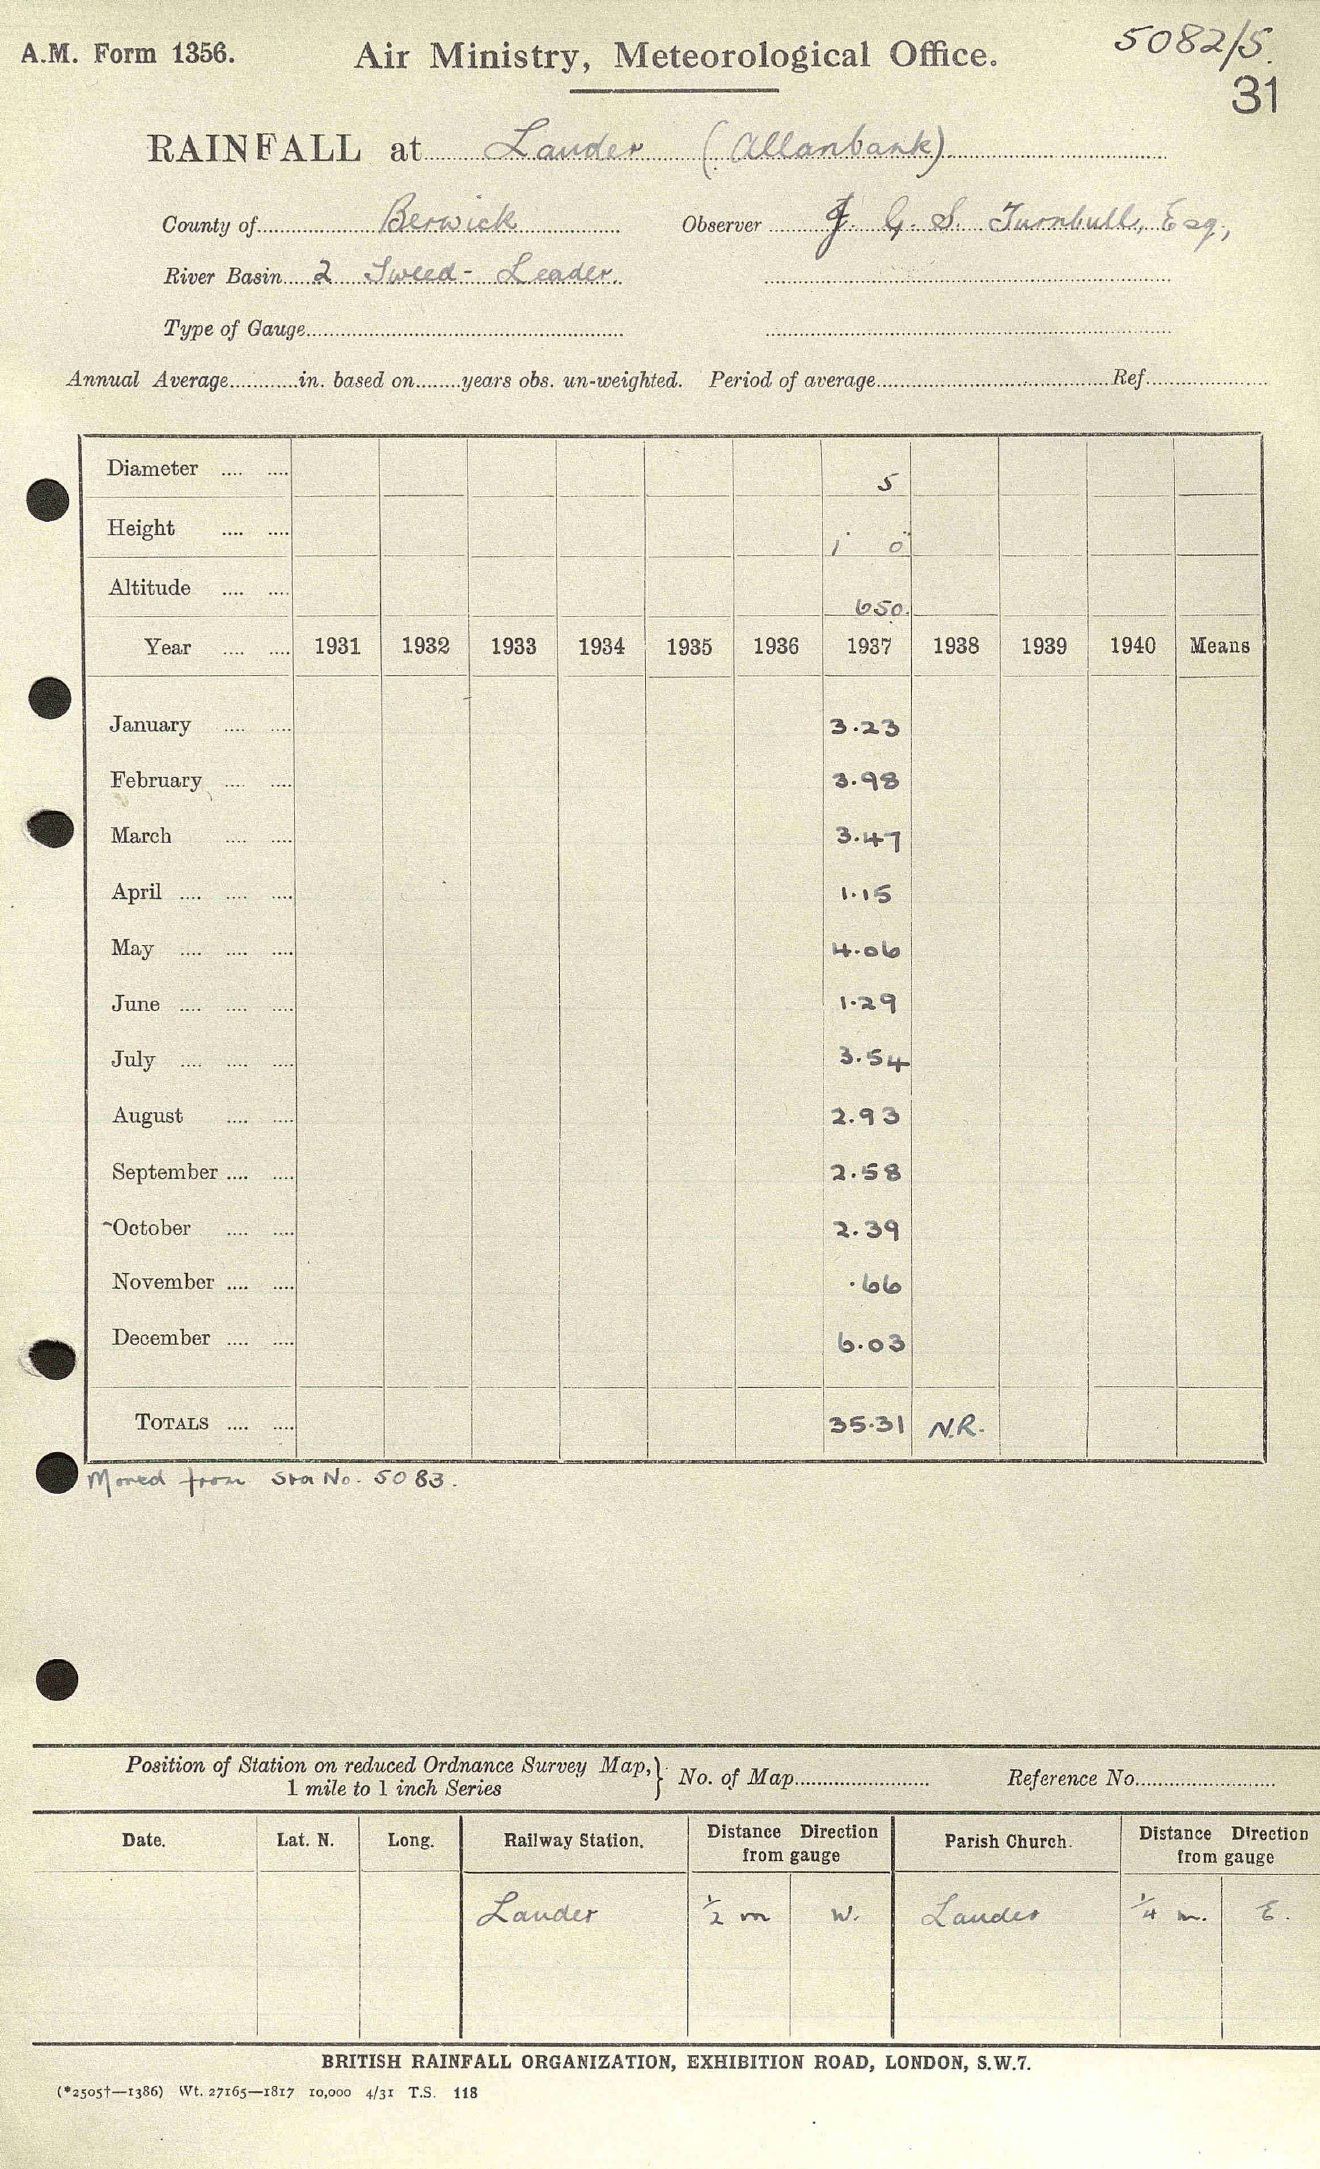 A.M. Form 1356. Air Ministry, Meteorological Office. 5082/5.
31
RAINFALL at Lauder (Allanbank)
County of Berwick Observer J. G. S. Turnbull, Esq.,
River Basin 2 Tweed - Leader.
Type of Gauge
Annual Average in. based on years obs. un-weighted. Period of average Ref.
Diameter 5
Height 1' 0"
Altitude 650.
Year 1931 1932 1933 1934 1935 1936 1937 1938 1939 1940 Means
January 3.23
February 3.98
March 3.47
April 1.15
May 4.06
June 1.29
July 3.54
August 2.93
September 2.58
October 2.39
November .66
December 6.03
TOTALS 35.31 N.R.
Moved from Sta No. 5083.
Position of Station on reduced Ordnance Survey Map, } No. of Map Reference No.
1 mile to 1 inch Series
Date. Lat. N. Long. Railway Station. Distance Direction from gauge Parish Church. Distance Direction from gauge
Lauder 1/2 m W. Lauder 1/4 m. E.
BRITISH RAINFALL ORGANIZATION, EXHIBITION ROAD, LONDON, S.W.7.
(*2505†—1386) Wt. 27165—1817 10,000 4/31 T.S. 118